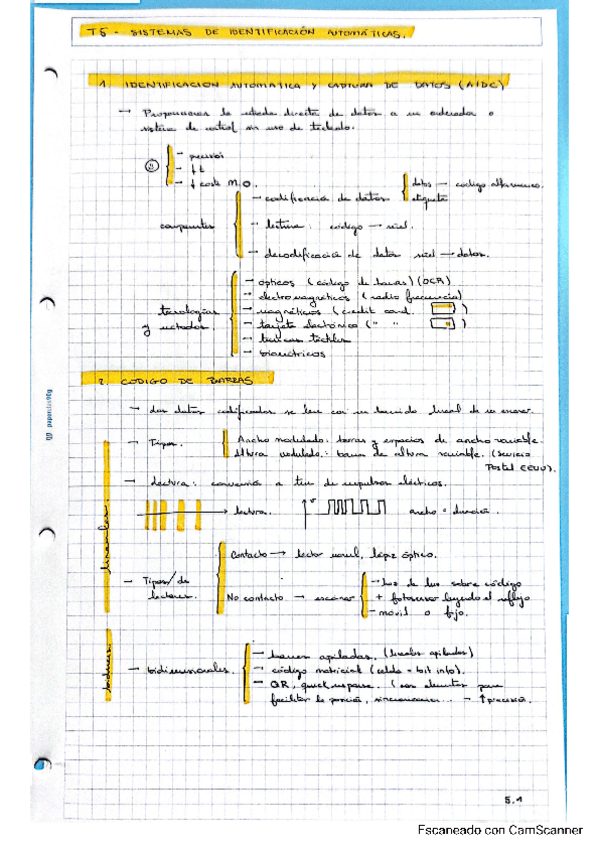 T5 - SISTEMAS DE IDENTIFICACIÓN AUTOMÁTICAS.
1. IDENTIFICACION AUTOMATICA Y CAPTURA DE DATOS (AIDC)
→ Proporcionar la entrada directa de datos a un ordenador o
sistema de control sin uso de teclado.
- precisión
- ↓ t
- ↓ coste M.O.
componentes
- codificación de datos
datos — código alfanumérico.
etiqueta
- lectura: código → señal.
- decodificación de datos señal → datos.
tecnologías y métodos.
- ópticos (código de barras) (OCR)
- electromagnéticos (radio frecuencia)
- magnéticos (credit card. )
- tarjeta electrónica (" " )
- biométricos
2. CODIGO DE BARRAS
→ Los datos codificados se leen con un barrido lineal de un escáner.
lineales.
→ Tipos.
Ancho modulado: barras y espacios de ancho variable.
Altura modulado: barras de altura variable. (Servicio
Postal EEUU).
→ lectura: conversión a tren de impulsos eléctricos.
→ lectura. ancho = duración.
→ Tipos/de lectores.
Contacto → lector manual, lápiz óptico.
No contacto → escáner
- haz de luz sobre código
+ fotosensor leyendo el reflejo
- móvil o fijo.
→ bidimensionales.
- barras apiladas. (lineales apilados)
- código matricial (celda = bit info).
- QR, quick response. (con elementos para
facilitar la posición, → ↑ precisión.
5.1
Escaneado con CamScanner